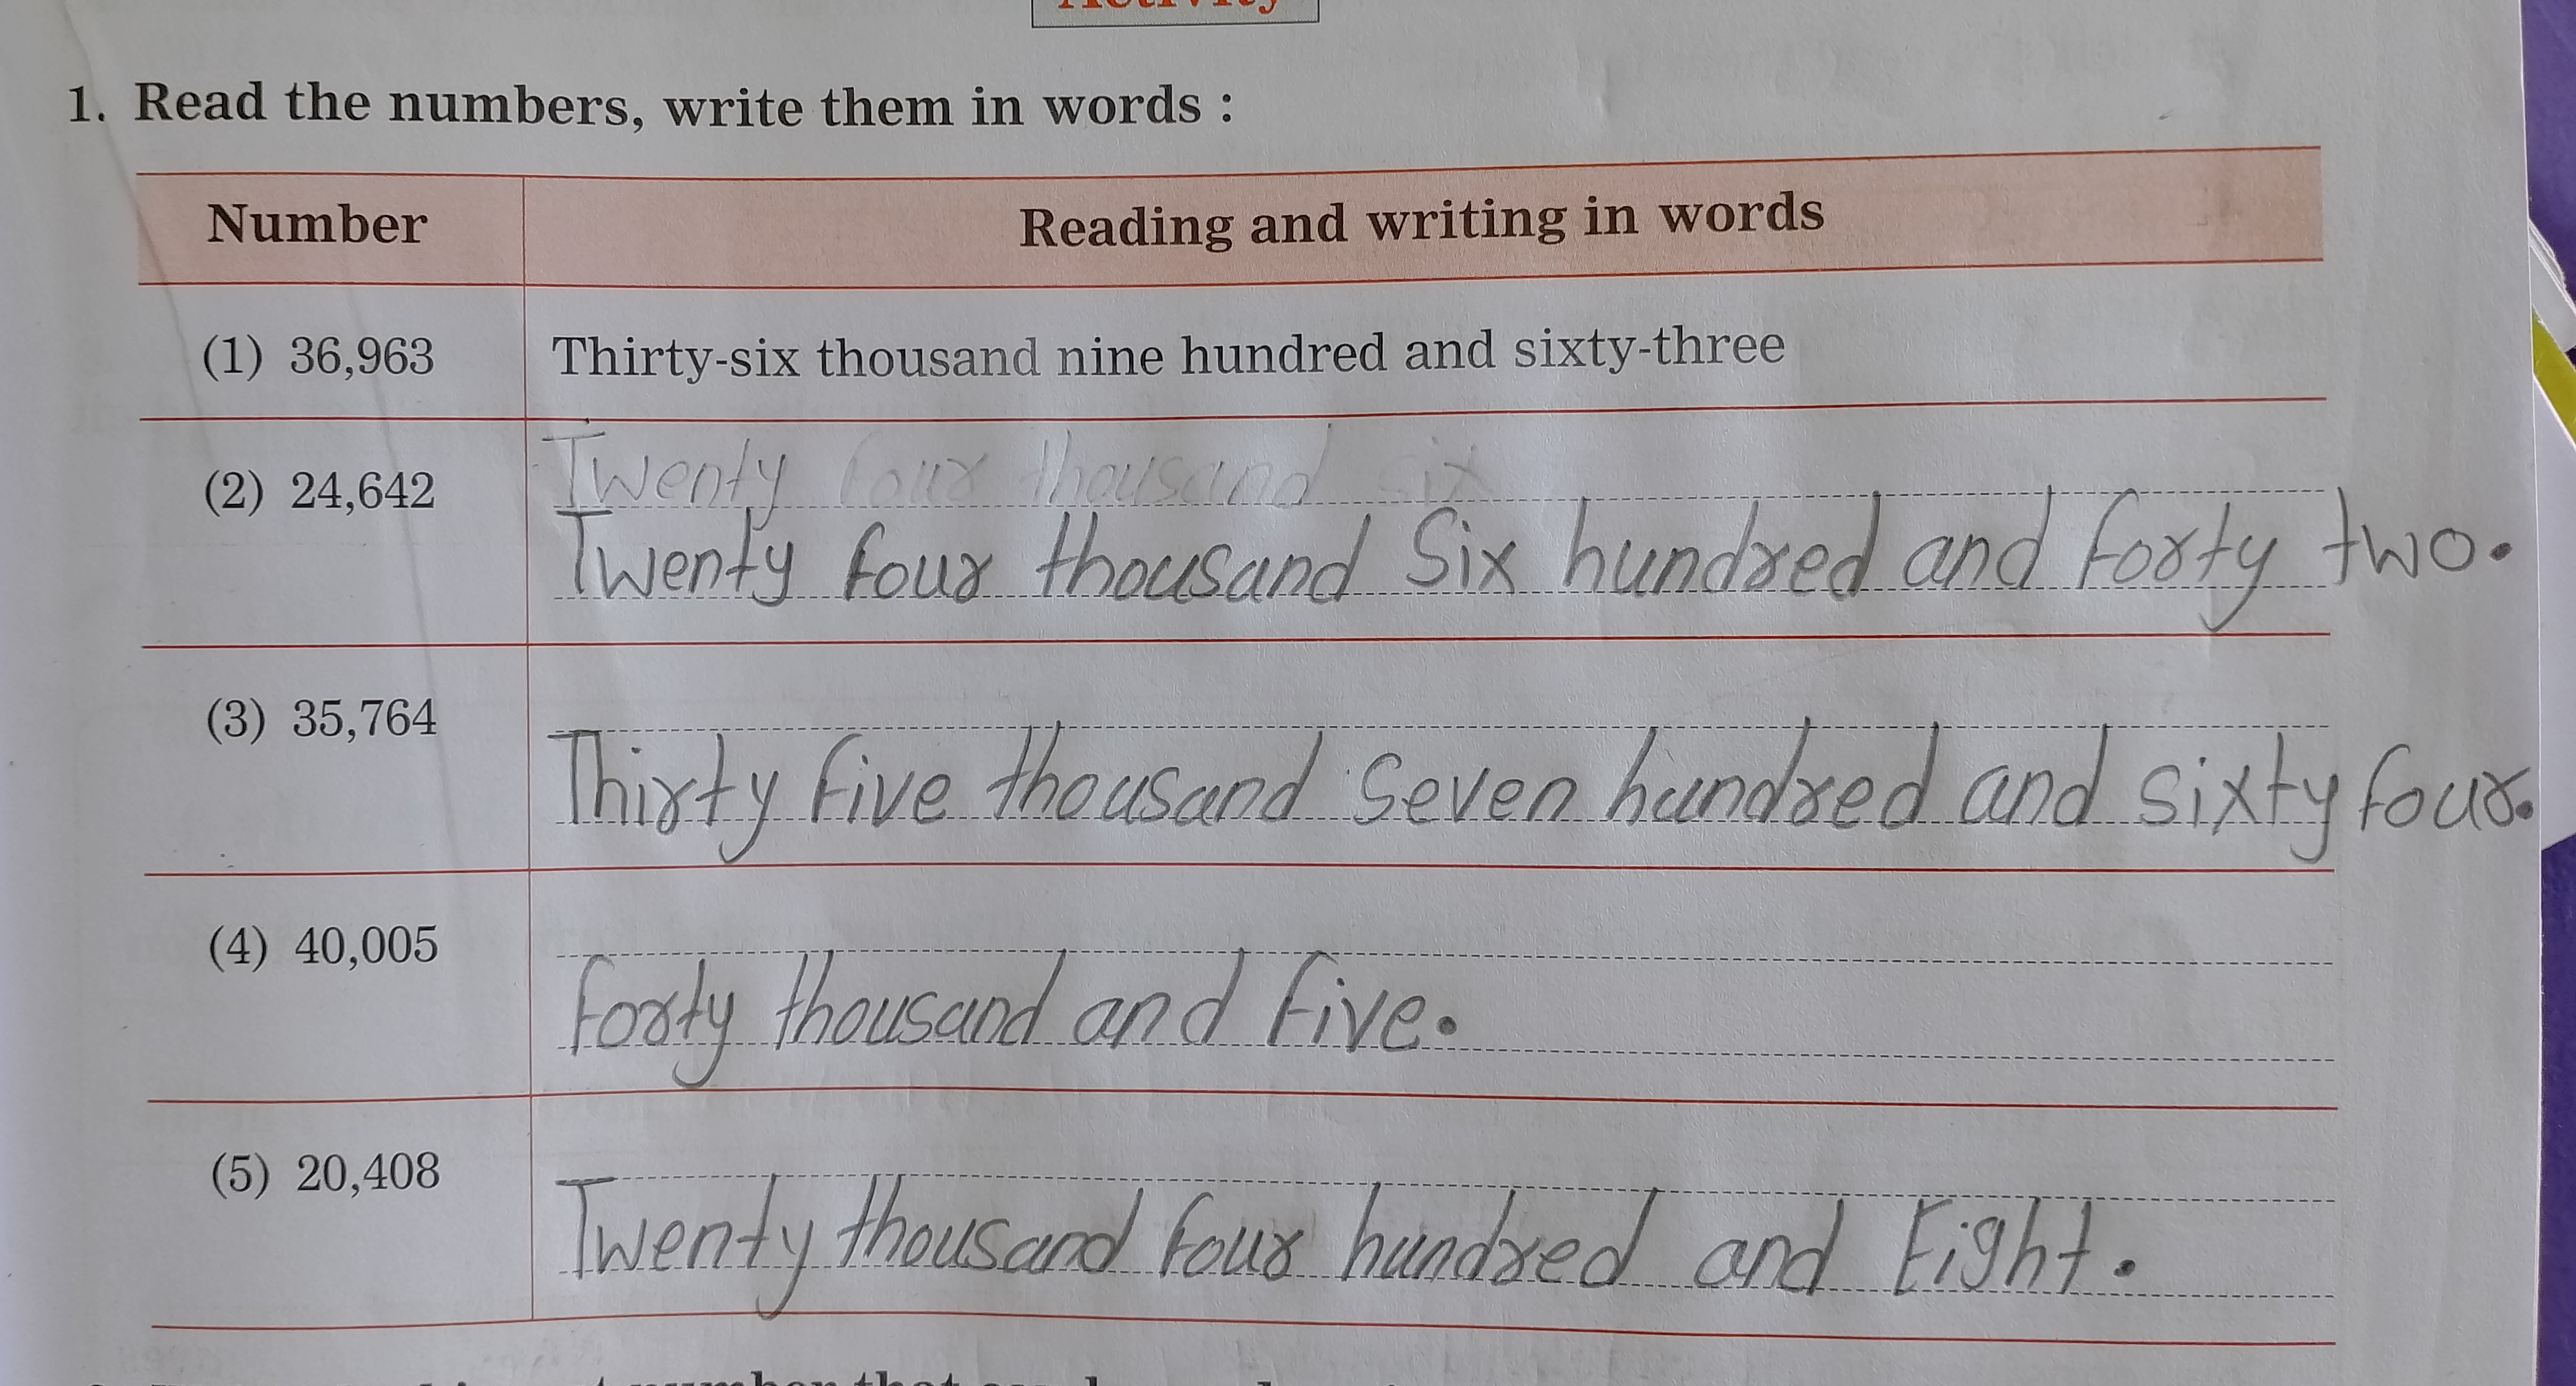 Activity
1. Read the numbers, write them in words :
Number Reading and writing in words
(1) 36,963 Thirty-six thousand nine hundred and sixty-three
Twenty four thousand six
(2) 24,642
Twenty four thousand Six hundred and forty two.
(3) 35,764
Thirty five thousand seven hundred and sixty four.
(4) 40,005
forty thousand and five.
(5) 20,408
Twenty thousand four hundred and Eight.